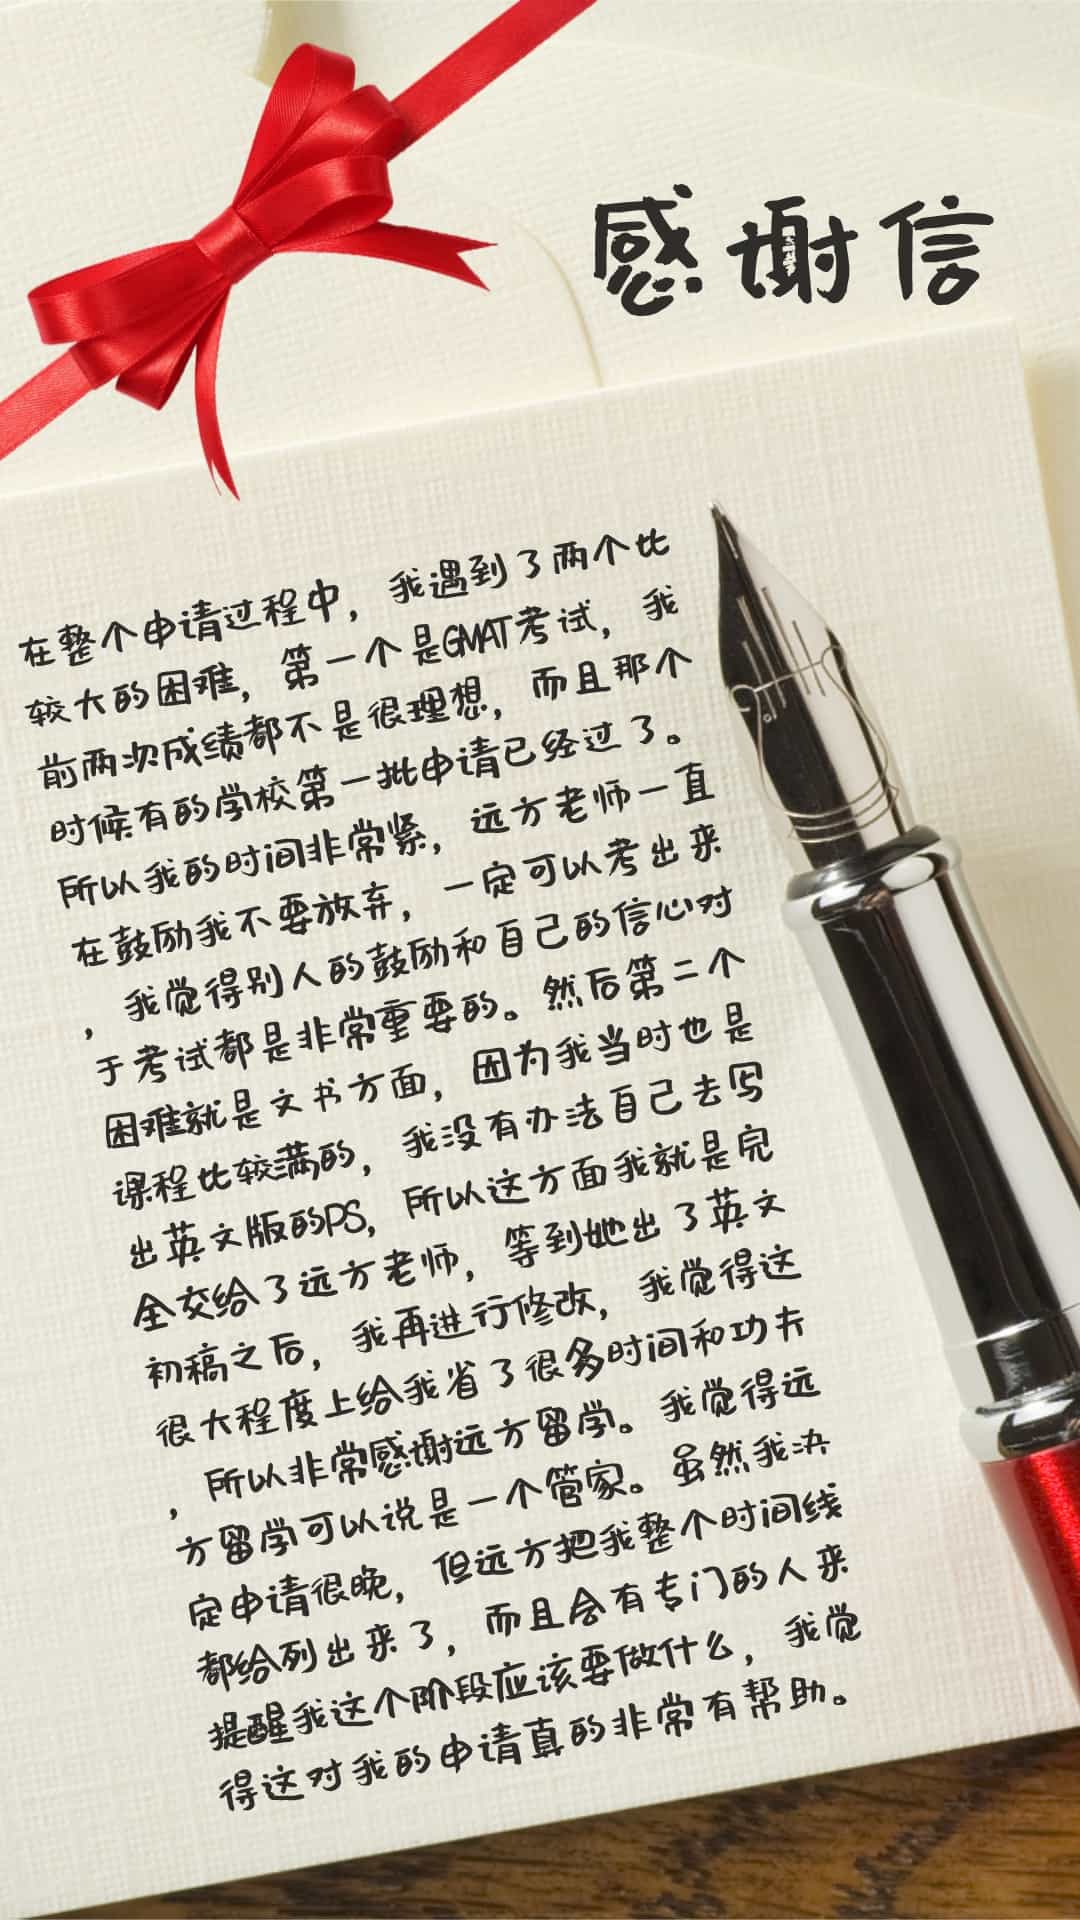 感谢信
在整个申请过程中，我遇到了两个比
较大的困难，第一个是GMAT考试，我
前两次成绩都不是很理想，而且那个
时候有的学校第一批申请已经过了。
所以我的时间非常紧，远方老师一直
在鼓励我不要放弃，一定可以考出来
，我觉得别人的鼓励和自己的信心对
于考试都是非常重要的。然后第二个
困难就是文书方面，因为我当时也是
课程比较满的，我没有办法自己去写
出英文版的PS，所以这方面我就是完
全交给了远方老师，等到她出了英文
初稿之后，我再进行修改，我觉得这
很大程度上给我省了很多时间和功夫
，所以非常感谢远方留学。我觉得远
方留学可以说是一个管家。虽然我决
定申请很晚，但远方把我整个时间线
都给列出来了，而且会有专门的人来
提醒我这个阶段应该要做什么，我觉
得这对我的申请真的非常有帮助。